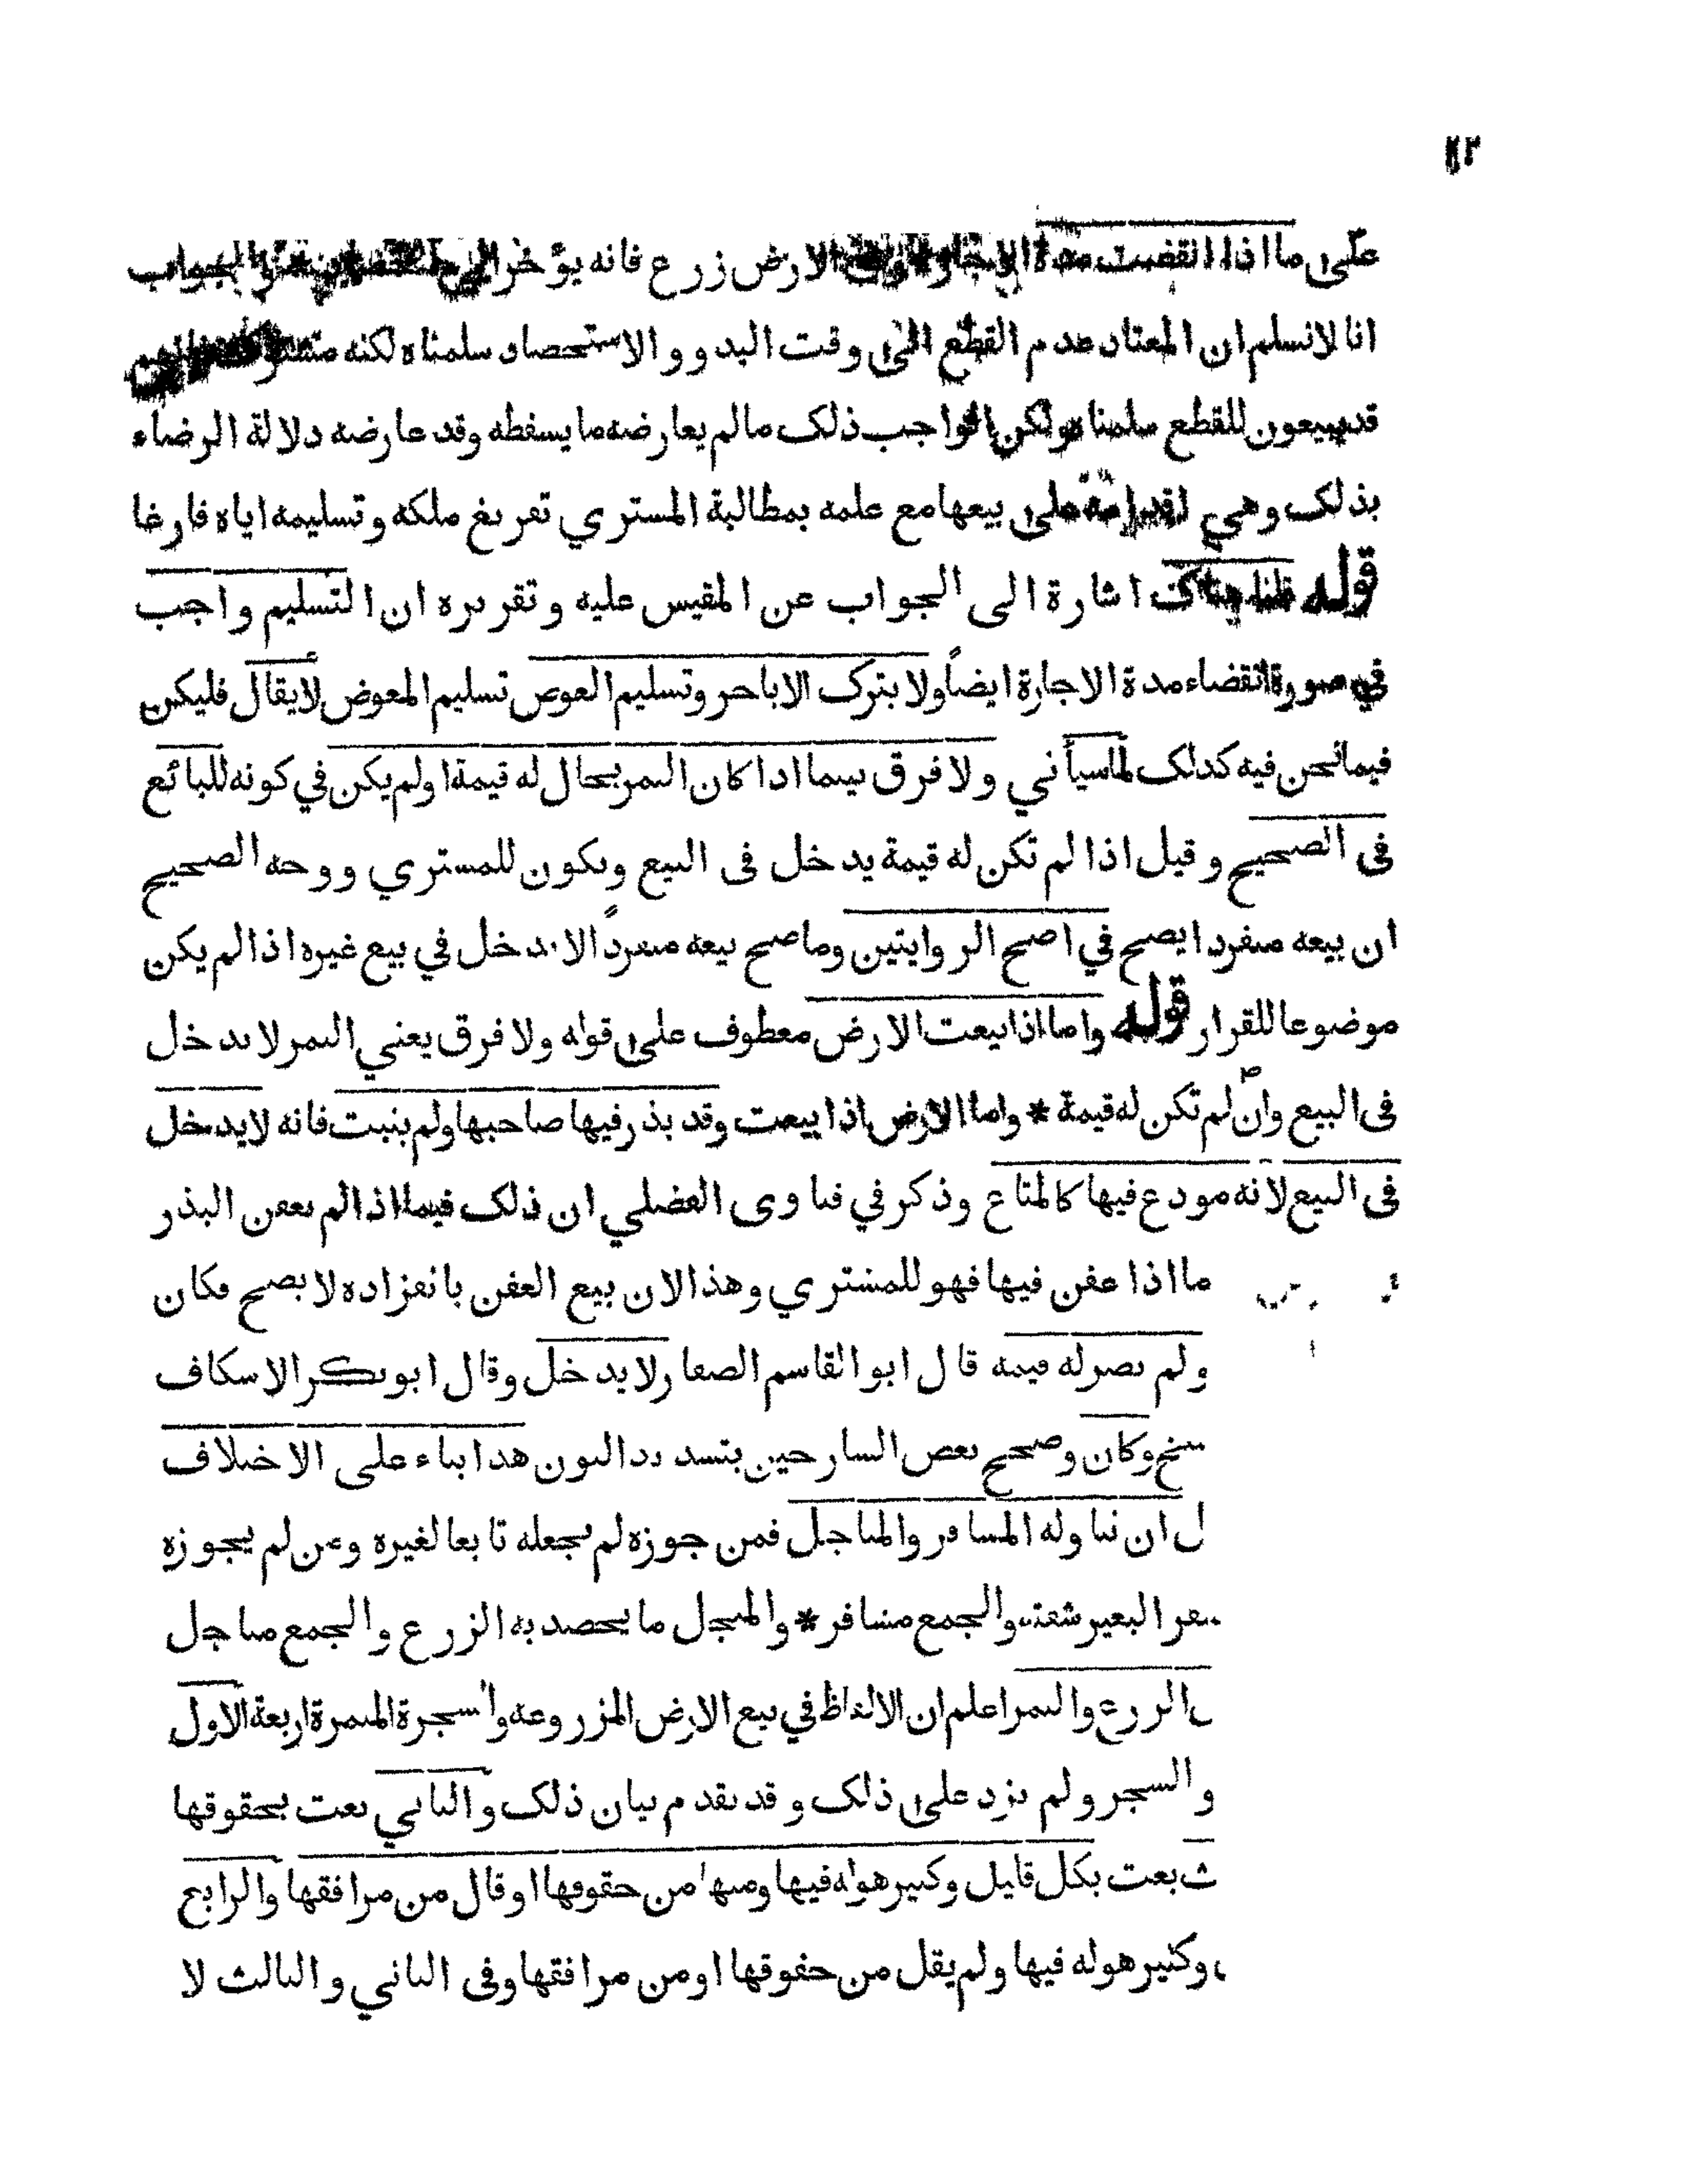 على ما اذا انقضت مدة الاجارة وفي الارض زرع فانه يؤخر الى الجواب
انا لا نسلم ان المعتاد عدم القطع الى وقت البدو والاستحصاد سلمناه لكنه مشترك
قد يبيعون للقطع سلمناه ولكن الواجب ذلك ما لم يعارضه ما يسقطه وقد عارضه دلالة الرضاء
بذلك وهي اقدامه على بيعها مع علمه بمطالبة المستري تفريغ ملكه وتسليمه اياه فارغا
قوله قلنا هناك اشارة الى الجواب عن المقيس عليه وتقريره ان التسليم واجب
في صورة انقضاء مدة الاجارة ايضاً ولا يترك الا باجر وتسليم العوض تسليم المعوض لأيقال فليكن
فيما نحن فيه كذلك لماسيأتي ولا فرق بينما اذا كان الثمر بحال له قيمة او لم يكن في كونه للبائع
فى الصحيح وقيل اذا لم تكن له قيمة يدخل فى البيع ويكون للمستري ووجه الصحيح
ان بيعه منفردا يصح في اصح الروايتين وما صح بيعه منفرداً لا يدخل في بيع غيره اذا لم يكن
موضوعا للقرار قوله واما اذا بيعت الارض معطوف على قوله ولا فرق يعني الثمر لا يدخل
فى البيع وان لم تكن له قيمة * واما الارض اذا بيعت وقد بذر فيها صاحبها ولم ينبت فانه لا يدخل
فى البيع لانه مودع فيها كالمتاع وذكر في فتاوى الفضلي ان ذلك فيما اذا لم يعفن البذر
ما اذا عفن فيها فهو للمشتري وهذا لان بيع العفن بانفراده لا يصح فكان
ولم يصر له قيمة قال ابو القاسم الصفار لا يدخل وقال ابو بكر الاسكاف
نسخ وكان وصحح بعض الشارحين بتشديد النون هذا بناء على الاختلاف
ل ان تناوله المشافر والمناجل فمن جوزه لم يجعله تابعا لغيره ومن لم يجوزه
البعير شفته والجمع مشافر * والمنجل ما يحصد به الزرع والجمع مناجل
الزرع والثمر اعلم ان الالفاظ في بيع الارض المزروعة والشجرة المثمرة اربعة الاول
والشجر ولم يزد على ذلك وقد تقدم بيان ذلك والثاني بعت بحقوقها
ث بعت بكل قليل وكثير هو له فيها ومنها من حقوقها او قال من مرافقها والرابع
وكثير هو له فيها ولم يقل من حقوقها او من مرافقها وفى الثاني والثالث لا